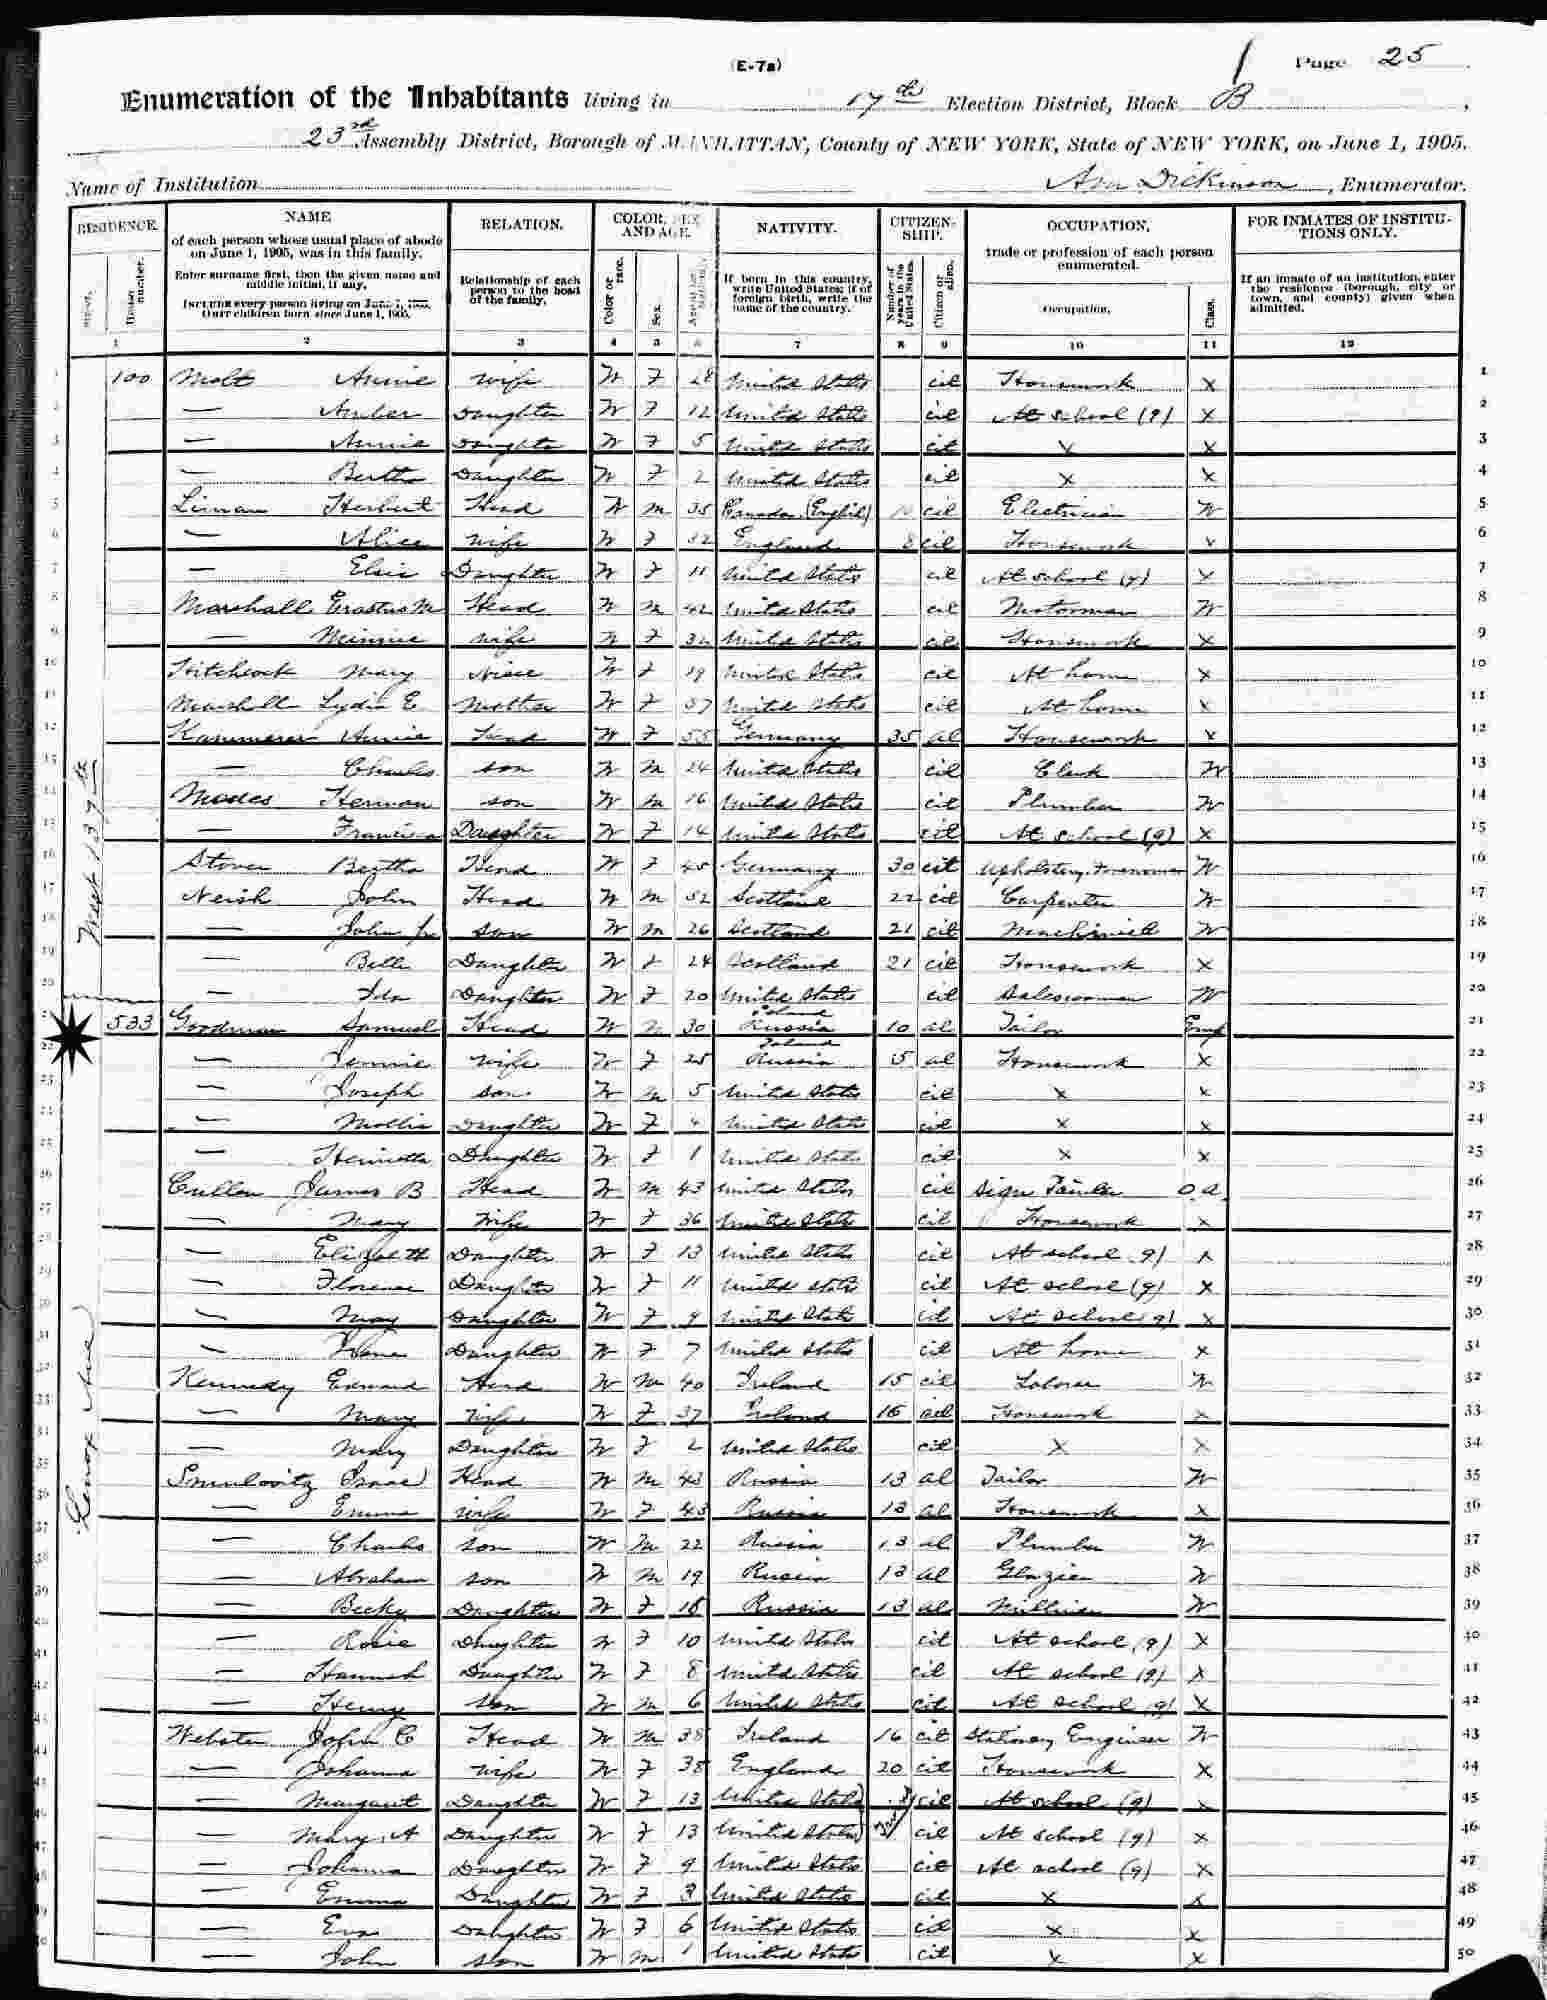 (E-7a)
Page 25
Enumeration of the Inhabitants living in 17th Election District, Block B,
23rd Assembly District, Borough of MANHATTAN, County of NEW YORK, State of NEW YORK, on June 1, 1905.
Name of Institution Dickinson, Enumerator.
RESIDENCE. NAME RELATION. COLOR, SEX AND AGE. NATIVITY. CITIZEN-SHIP. OCCUPATION. FOR INMATES OF INSTITU-TIONS ONLY.
of each person whose usual place of abode on June 1, 1905, was in this family.
Enter surname first, then the given name and middle initial, if any.
INCLUDE every person living on June 1, 1905. OMIT children born since June 1, 1905.
Relationship of each person to the head of the family.
If born in this country, write United States; if of foreign birth, write the name of the country.
trade or profession of each person enumerated.
If an inmate of an institution, enter the residence (borough, city or town, and county) given when admitted.
House number. Color or race. Sex. Number of years in the United States. Citizen or alien. Occupation. Class.
1 2 3 4 5 6 7 8 9 10 11 12
West 137th
Lenox Ave
1 100 Molt Annie wife W F 28 United States cit Housework X 1
2 — Amber Daughter W F 12 United States cit At school (9) X 2
3 — Annie Daughter W F 5 United States cit X X 3
4 — Bertha Daughter W F 2 United States cit X X 4
5 Herbert Head W M 35 Canada (English) cit Electrician W 5
6 — Alice wife W F 32 England 8 cit Housework X 6
7 — Elsie Daughter W F 11 United States cit At school (9) X 7
8 Marshall Erastus M Head W M 42 United States cit Motorman W 8
9 — Minnie wife W F 32 United States cit Housework X 9
10 Hitchcock Mary Niece W F 19 United States cit At home X 10
11 Marshall Lydia E Mother W F 57 United States cit At home X 11
12 Kammerer Annie Head W F 55 Germany 35 al Housework X 12
13 — Charles son W M 24 United States cit Clerk W 13
14 Modes Herman son W M 16 United States cit Plumber W 14
15 — Daughter W F 14 United States cit At school (9) X 15
16 Stover Bertha Head W F 45 Germany 30 cit Upholstery Forewoman W 16
17 Neish John Head W M 52 Scotland 22 cit Carpenter W 17
18 — John Jr son W M 26 Scotland 21 cit Machinist W 18
19 — Belle Daughter W F 24 Scotland 21 cit Housework X 19
20 — Ida Daughter W F 20 United States cit Saleswoman W 20
21 533 Goodman Samuel Head W M 30 Poland Russia 10 al Tailor Emp 21
22 — Jennie wife W F 25 Poland Russia 5 al Housework X 22
23 — Joseph son W M 5 United States cit X X 23
24 — Mollie Daughter W F 4 United States cit X X 24
25 — Henrietta Daughter W F 1 United States cit X X 25
26 Cullen James B Head W M 43 United States cit Sign Painter O.A. 26
27 — Mary wife W F 36 United States cit Housework X 27
28 — Elizabeth Daughter W F 13 United States cit At school (9) X 28
29 — Florence Daughter W F 11 United States cit At school (9) X 29
30 — May Daughter W F 9 United States cit At school (9) X 30
31 — Daughter W F 7 United States cit At home X 31
32 Kennedy Edward Head W M 40 Ireland 15 cit Laborer W 32
33 — Mary wife W F 37 Ireland 16 cit Housework X 33
34 — Mary Daughter W F 2 United States cit X X 34
35 Smulovitz Isaac Head W M 43 Russia 13 al Tailor W 35
36 — Emma wife W F 43 Russia 13 al Housework X 36
37 — Charles son W M 22 Russia 13 al Plumber W 37
38 — Abraham son W M 19 Russia 13 al Glazier W 38
39 — Becky Daughter W F 16 Russia 13 al Milliner W 39
40 — Rosie Daughter W F 10 United States cit At school (9) X 40
41 — Hannah Daughter W F 8 United States cit At school (9) X 41
42 — Henry son W M 6 United States cit At school (9) X 42
43 Webster John C Head W M 38 Ireland 16 cit Stationary Engineer W 43
44 — Johanna wife W F 38 England 20 cit Housework X 44
45 — Margaret Daughter W F 13 United States cit At school (9) X 45
46 — Mary A Daughter W F 13 United States cit At school (9) X 46
47 — Johanna Daughter W F 9 United States cit At school (9) X 47
48 — Emma Daughter W F 3 United States cit X X 48
49 — Eva Daughter W F 6 United States cit X X 49
50 — John son W M 1 United States cit X X 50